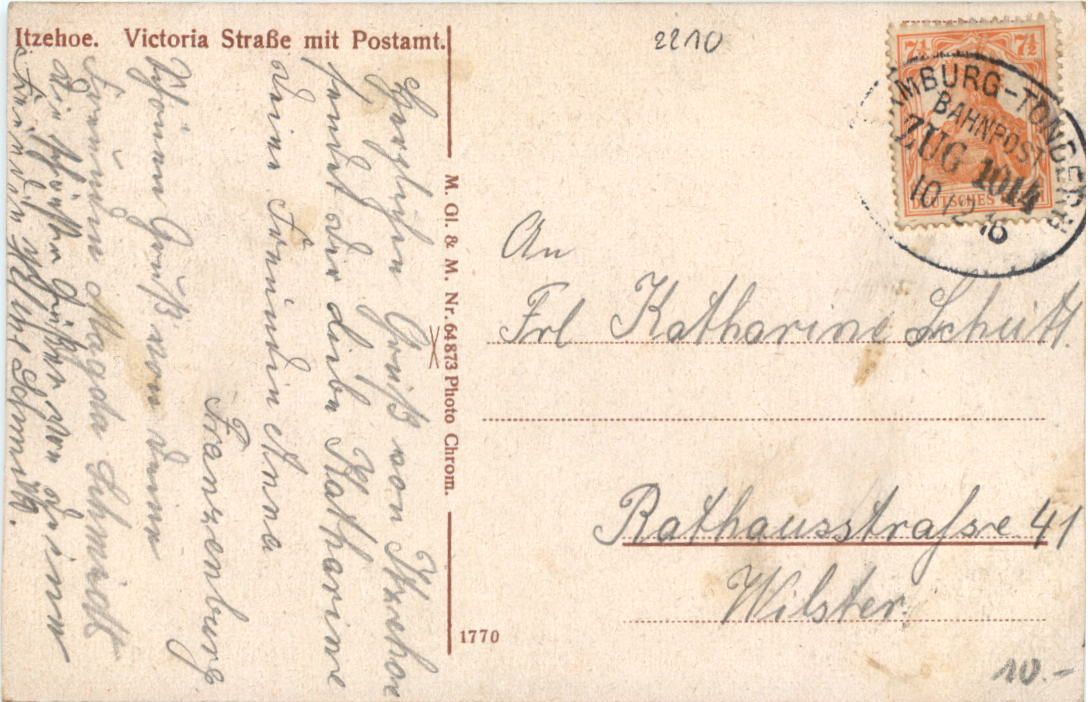 Itzehoe. Victoria Straße mit Postamt.
2210
7½ 7½
DEUTSCHES
HAMBURG-TONDERN
BAHNPOST
ZUG 1014
10 12 16
An
Frl Katharine Schütt.
Rathausstrasse 41
Wilster.
10.-
M. Gl. & M. Nr. 64873 Photo Chrom.
1770
Herzlichen Gruß von Itzehoe
sendet dir liebe Katharine
deine Freundin Anna
Franzenburg
Schönen Gruß von deine
Freundin Magda Schmidt
Die schönsten Grüße von Deine
Freundin Schmidt.